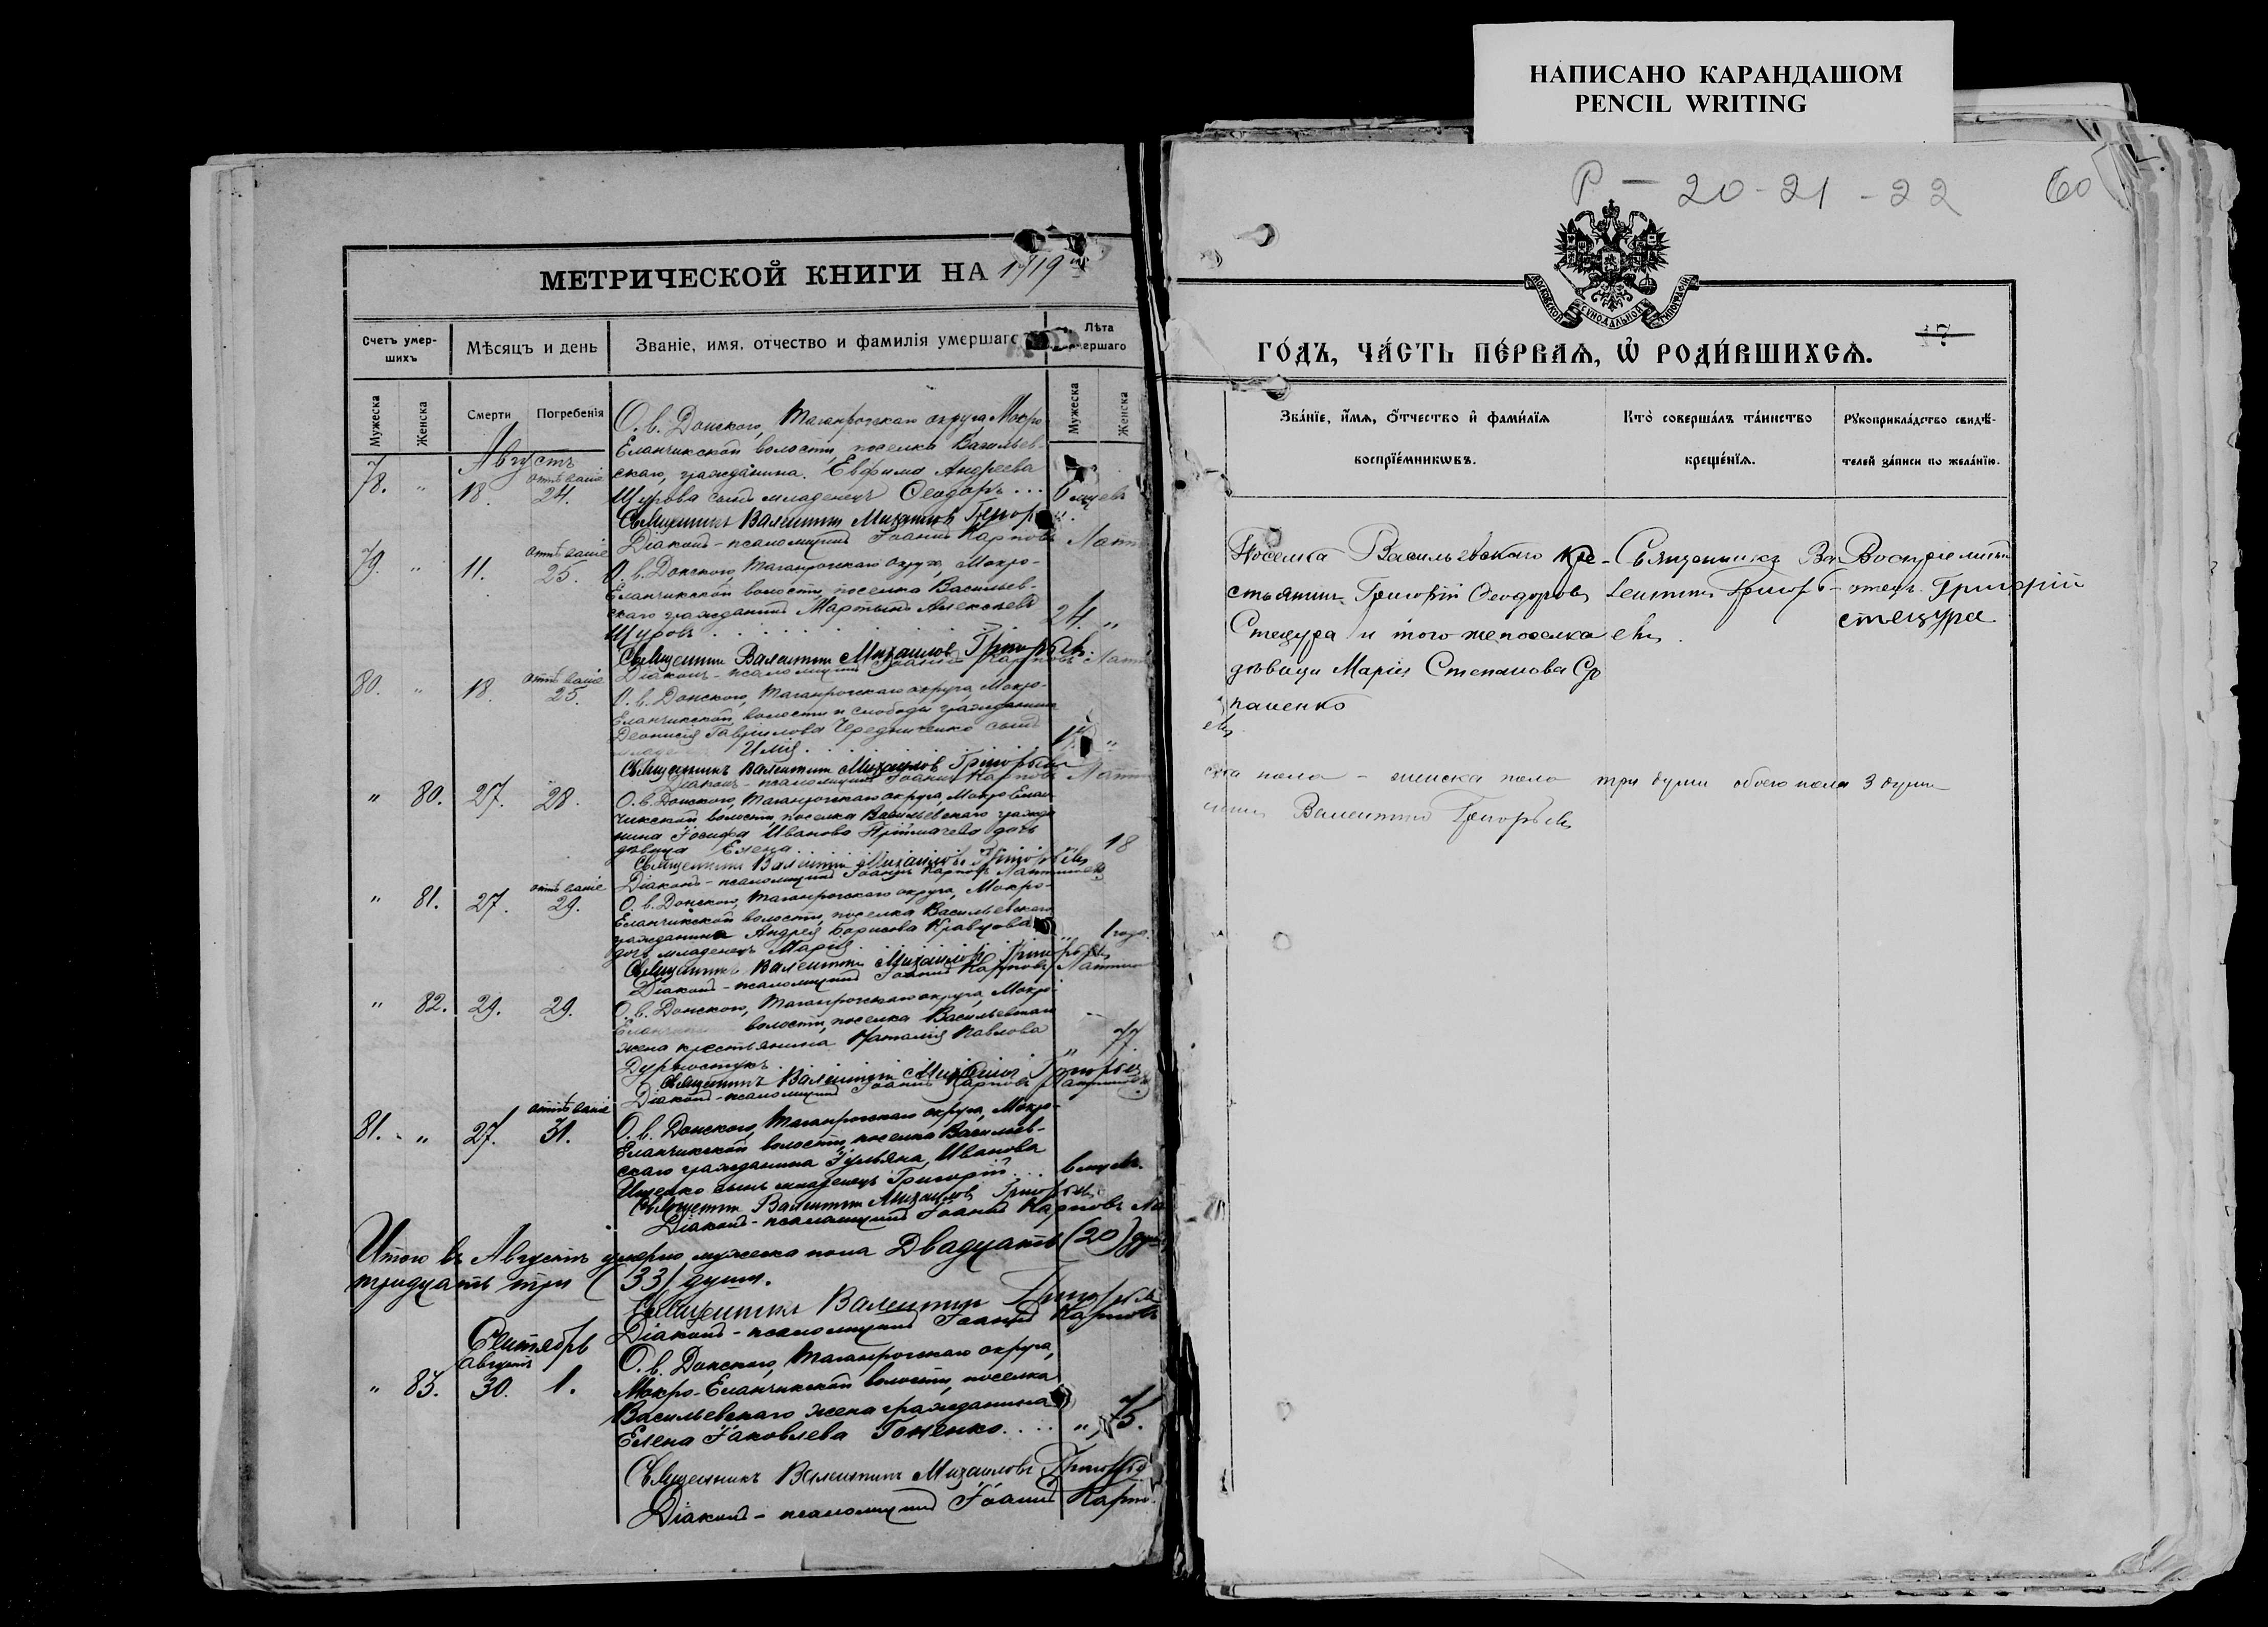 НАПИСАНО КАРАНДАШОМ
PENCIL WRITING
МЕТРИЧЕСКОЙ КНИГИ НА 1919
Счетъ умер-
шихъ
Мѣсяцъ и день
Званіе, имя, отчество и фамилія умершаго
Лѣта
умершаго
Мужеска
Женска
Смерти
Погребенія
Мужеска
Женска
Августъ
78. " 18. отпѣваніе 24.
О. в. Донского, Таганрогскаго округа, Мокро-
Еланчикской волости, поселка Васильев-
скаго, гражданина Евфима Андреева
Щурова сынъ младенецъ Ѳеодоръ...
Священникъ Валентинъ Михаиловъ
Діаконъ-псаломщикъ Іоаннъ Карповъ
79. " 11. отпѣваніе 25.
О. в. Донского, Таганрогскаго округа, Мокро-
Еланчикской волости, поселка Васильев-
скаго гражданинъ Мартынъ Алексѣевъ
Щуровъ . . . 24. "
Священникъ Валентинъ Михаиловъ Григорьевъ.
Діаконъ-псаломщикъ Іоаннъ Карповъ
80. " 18. отпѣваніе 25.
О. в. Донского, Таганрогскаго округа, Мокро-
Еланчикской волости и слободы гражданина
Гаврилова Чередниченко сынъ
Илія . . .
Священникъ Валентинъ Михаиловъ Григорьевъ
Діаконъ-псаломщикъ Іоаннъ Карповъ
" 80. 27. 28.
О. в. Донского, Таганрогскаго округа, Мокро-Елан-
чикской волости, поселка Васильевскаго гражда-
нина Іосифа Иванова дочь
дѣвица Елена . . . 18
Священникъ Валентинъ Михаиловъ Григорьевъ
Діаконъ-псаломщикъ Іоаннъ Карповъ
" 81. 27. отпѣваніе 29.
О. в. Донского, Таганрогскаго округа, Мокро-
Еланчикской волости, поселка Васильевскаго
гражданина Андрея Борисова Кравцова
дочь младенецъ Марія . . . " 1 года.
Священникъ Валентинъ Михаиловъ Григорьевъ
Діаконъ-псаломщикъ Іоаннъ Карповъ
" 82. 29. 29.
О. в. Донского, Таганрогскаго округа, Мокро-
волости, поселка Васильевскаго
жена крестьянина Наталія Павлова
. . . " 77.
Священникъ Валентинъ Михаиловъ Григорьевъ
Діаконъ-псаломщикъ Іоаннъ Карповъ
81. " 27. отпѣваніе 31.
О. в. Донского, Таганрогскаго округа, Мокро-
Еланчикской волости, поселка Васильев-
скаго гражданина Іульяна Иванова
Ищенко сынъ младенецъ Григорій...
Священникъ Валентинъ Михаиловъ Григорьевъ
Діаконъ-псаломщикъ Іоаннъ Карповъ
Итого въ Августѣ умерло мужеска пола Двадцать (20)
тридцать три (33) душъ.
Священникъ Валентинъ Григорьевъ
Діаконъ-псаломщикъ Іоаннъ Карповъ
Сентябрь
" 83. Августъ 30. 1.
О. в. Донского, Таганрогскаго округа,
Мокро-Еланчикской волости, поселка
Васильевскаго жена гражданина
Елена Іаковлева Гоненко. . . . " 75.
Священникъ Валентинъ Михаиловъ
Діаконъ-псаломщикъ Іоаннъ
Р - 20 - 21 - 22
60
МОСКОВСКОЙ СѴНОДАЛЬНОЙ ТИПОГРАФІИ
ГО́ДЪ, ЧА́СТЬ ПЕ́РВАѦ, Ѡ҆ РОДИ́ВШИХСѦ.
Зва́нїе, и҆́мѧ, ѻ҆́тчество и҆ фами́лїѧ
воспрїе́мникѡвъ.
Кто̀ соверша́лъ та́инство
креще́нїѧ.
Рꙋкоприкла́дство свидѣ́-
телей за́писи по жела́нїю.
Поселка Васильевского кре-
стьянинъ Григорій Ѳеодоровъ
Стецура и того же поселка
дѣвица Марія Степанова
паненко
Священникъ Ва-
лентинъ Григорь-
евъ.
отецъ Григорій
Стецура
пола - женска пола три души обоего пола 3 души
Валентинъ Григорьевъ